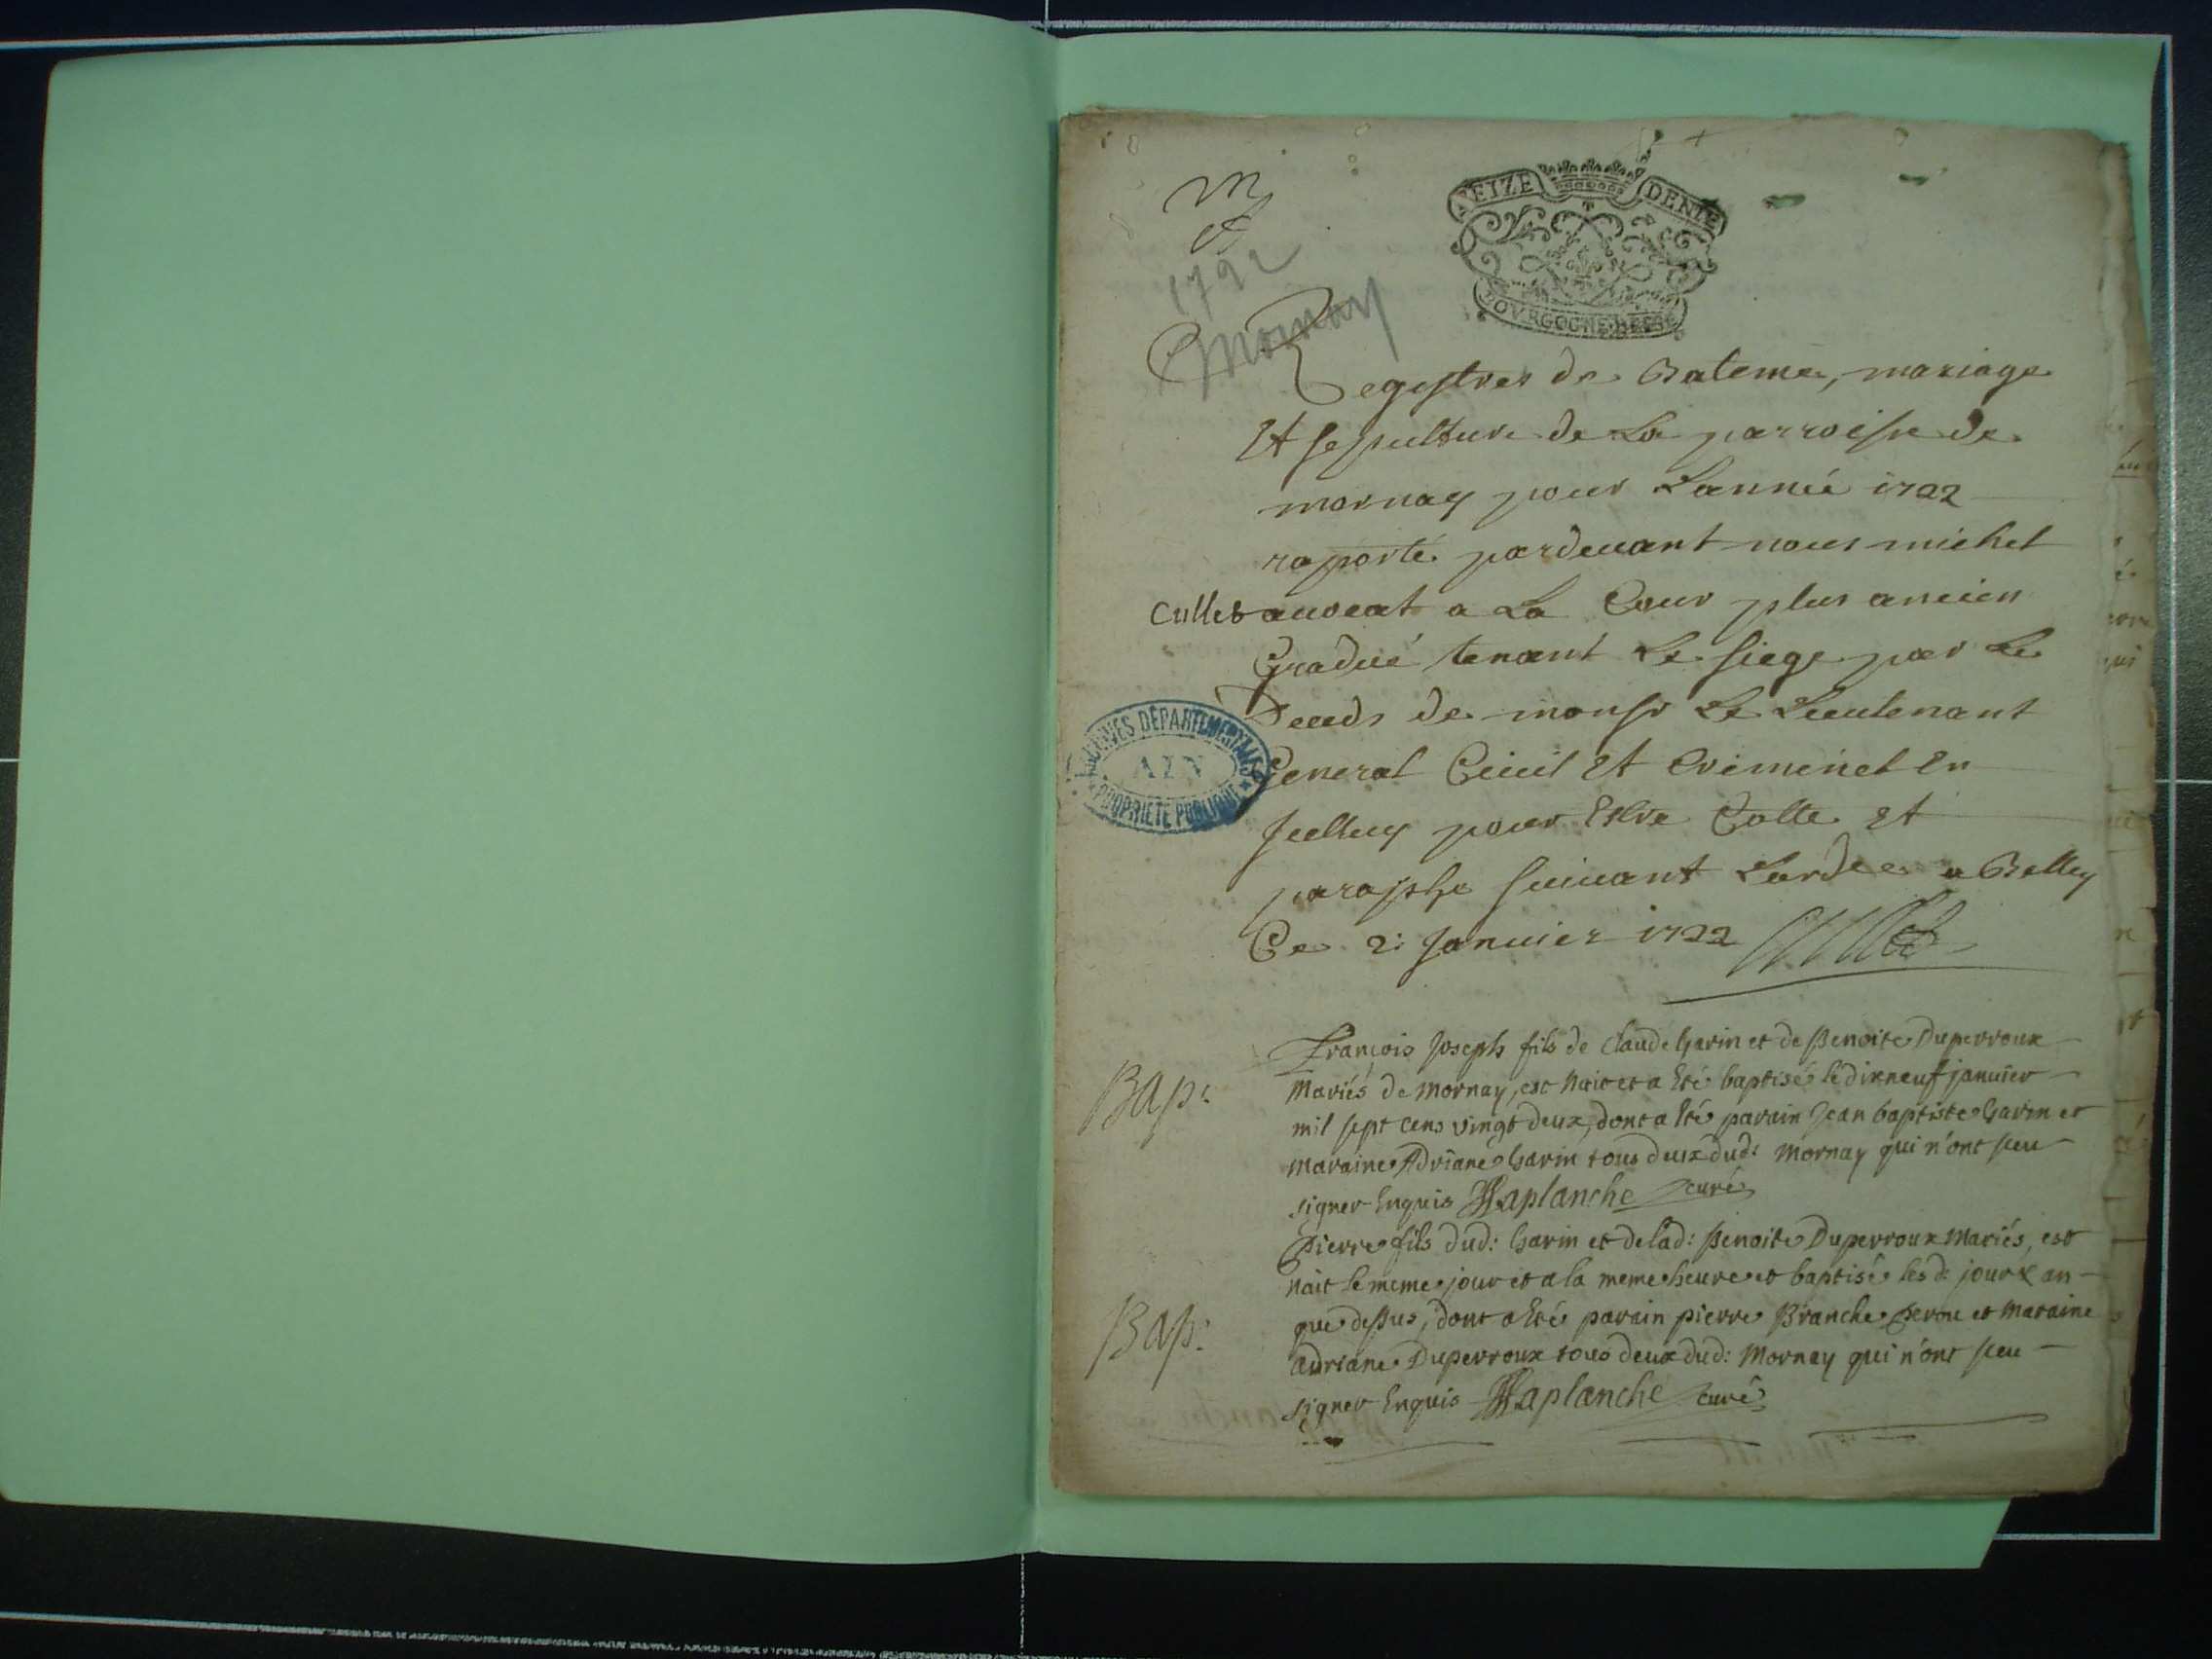 m
SEIZE DENIE
BOVRGOGNE BRESSE
1722
Mornay
Regestres de Bateme, mariage
Et sepulture de La parroisse de
mornay pour Lannée 1722
raporté pardeuant nous michel
Cullet auocat a La Cour plus ancien
Gradué tenant Le siege par Le
Deceds de monsr Le Lieutenant
General Ciuil Et Criminel En
pour Estre Cotte Et
paraphe suiuant Lordre a Belley
Ce 2: Januier 1722 Cullet
ARCHIVES DÉPARTEMENTALES
AIN
PROPRIÉTÉ PUBLIQUE
Bap:
François Joseph fils de Claude Garin et de Benoite Duperroux
Mariés de Mornay, est Nait et a Eté baptisé le dixneuf januier
mil sept cens vingt deux, dont a Eté parain Jean baptiste Garin et
Maraine Adriane Garin tous deux dud: Mornay qui n'ont sceu
signer Enquis Laplanche curé
Bap:
Pierre fils dud: Garin et de lad: Benoite Duperroux Mariés, est
Nait le meme jour et a la meme heure et baptisé les d: jour & an
que dessus, dont a Eté parain pierre Branche et Maraine
Adriane Duperroux tous deux dud: Mornay qui n'ont sceu
signer Enquis Laplanche curé